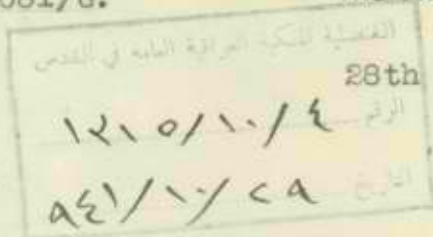 081/G.
القنصلية الملكية العراقية العامة في القدس
28th
الرقم ١٢١٥/١٠/٤
التاريخ ٩٤١/١٠/٢٩